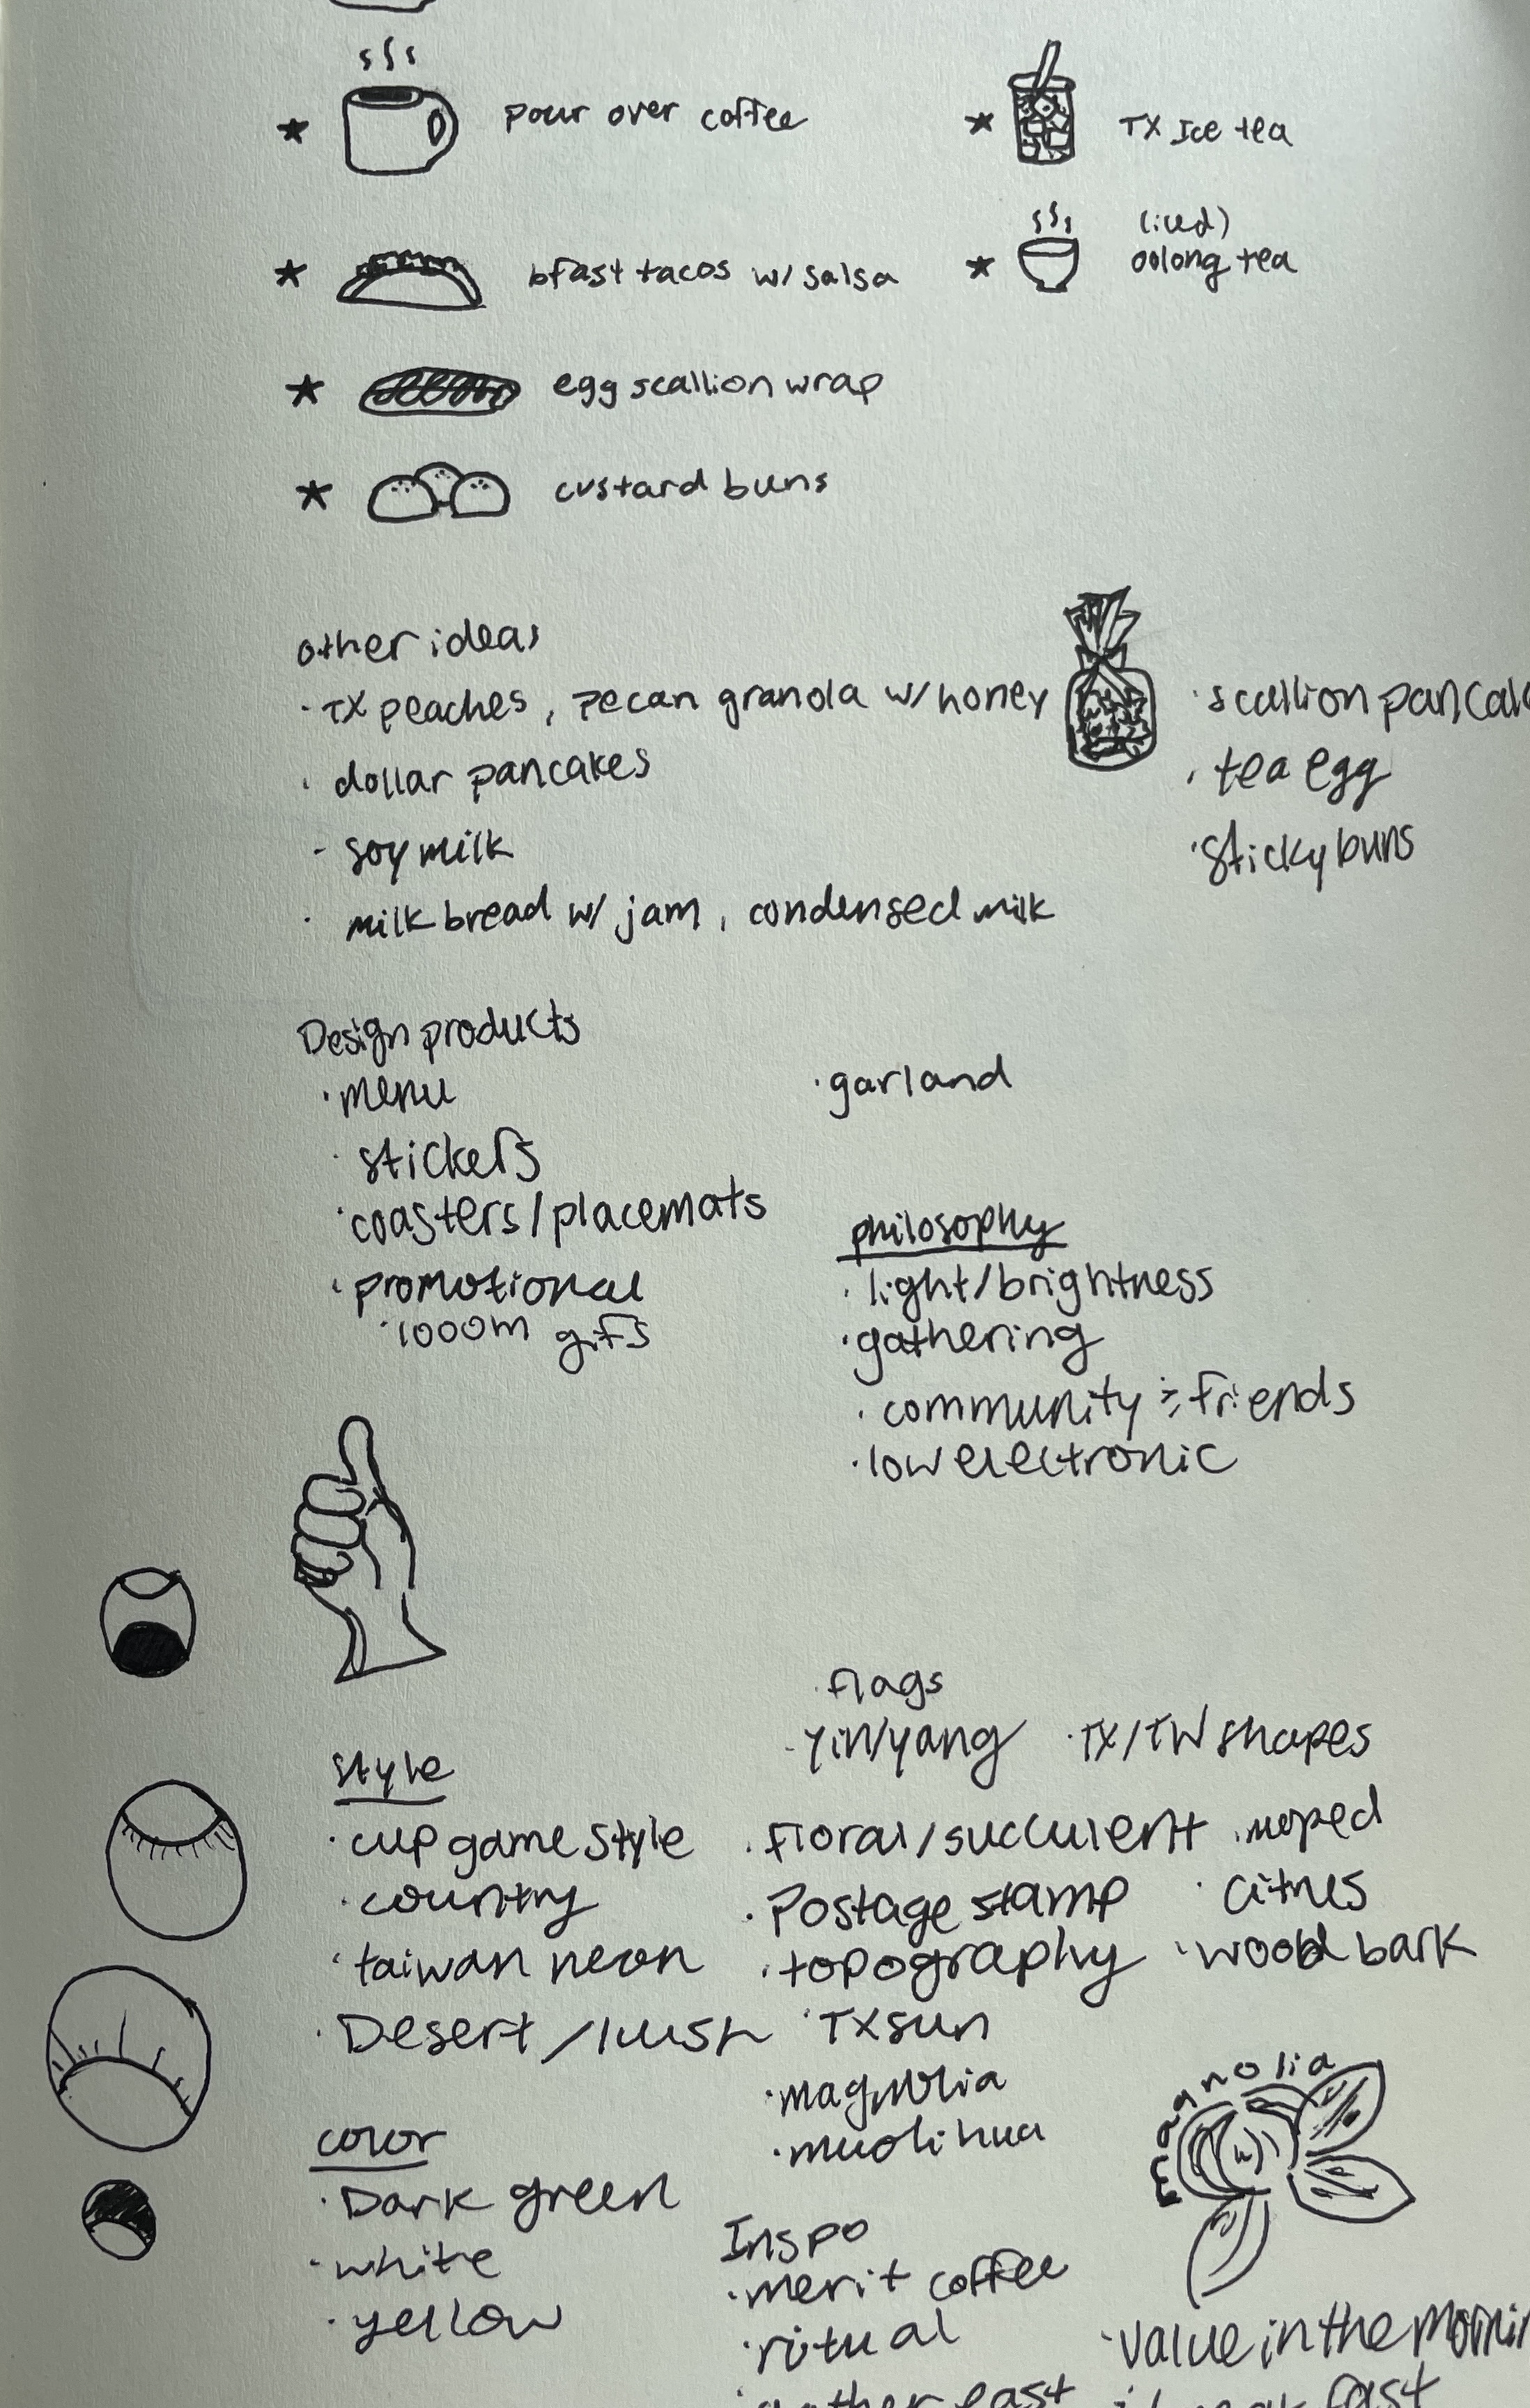 pour over coffee
TX Ice tea
bfast tacos w/ salsa
(iced)
oolong tea
egg scallion wrap
custard buns
other ideas
· TX peaches, pecan granola w/ honey
· dollar pancakes
- soy milk
· milk bread w/ jam, condensed milk
· scallion pancak
· tea egg
· Sticky buns
Design products
· menu
· stickers
· coasters/placemats
· promotional
· 1000m gifs
· garland
philosophy
· light/brightness
· gathering
· community & friends
· low electronic
style
· cup game style
· country
· taiwan neon
· Desert/lush
· flags
- yin/yang
· TX/TW shapes
· floral/succulent
· moped
· Postage stamp
· citrus
· topography
· wood bark
· TX sun
· magnolia
· muolihua
magnolia
color
· Dark green
· white
· yellow
Inspo
· merit coffee
· ritual
· value in the mornin